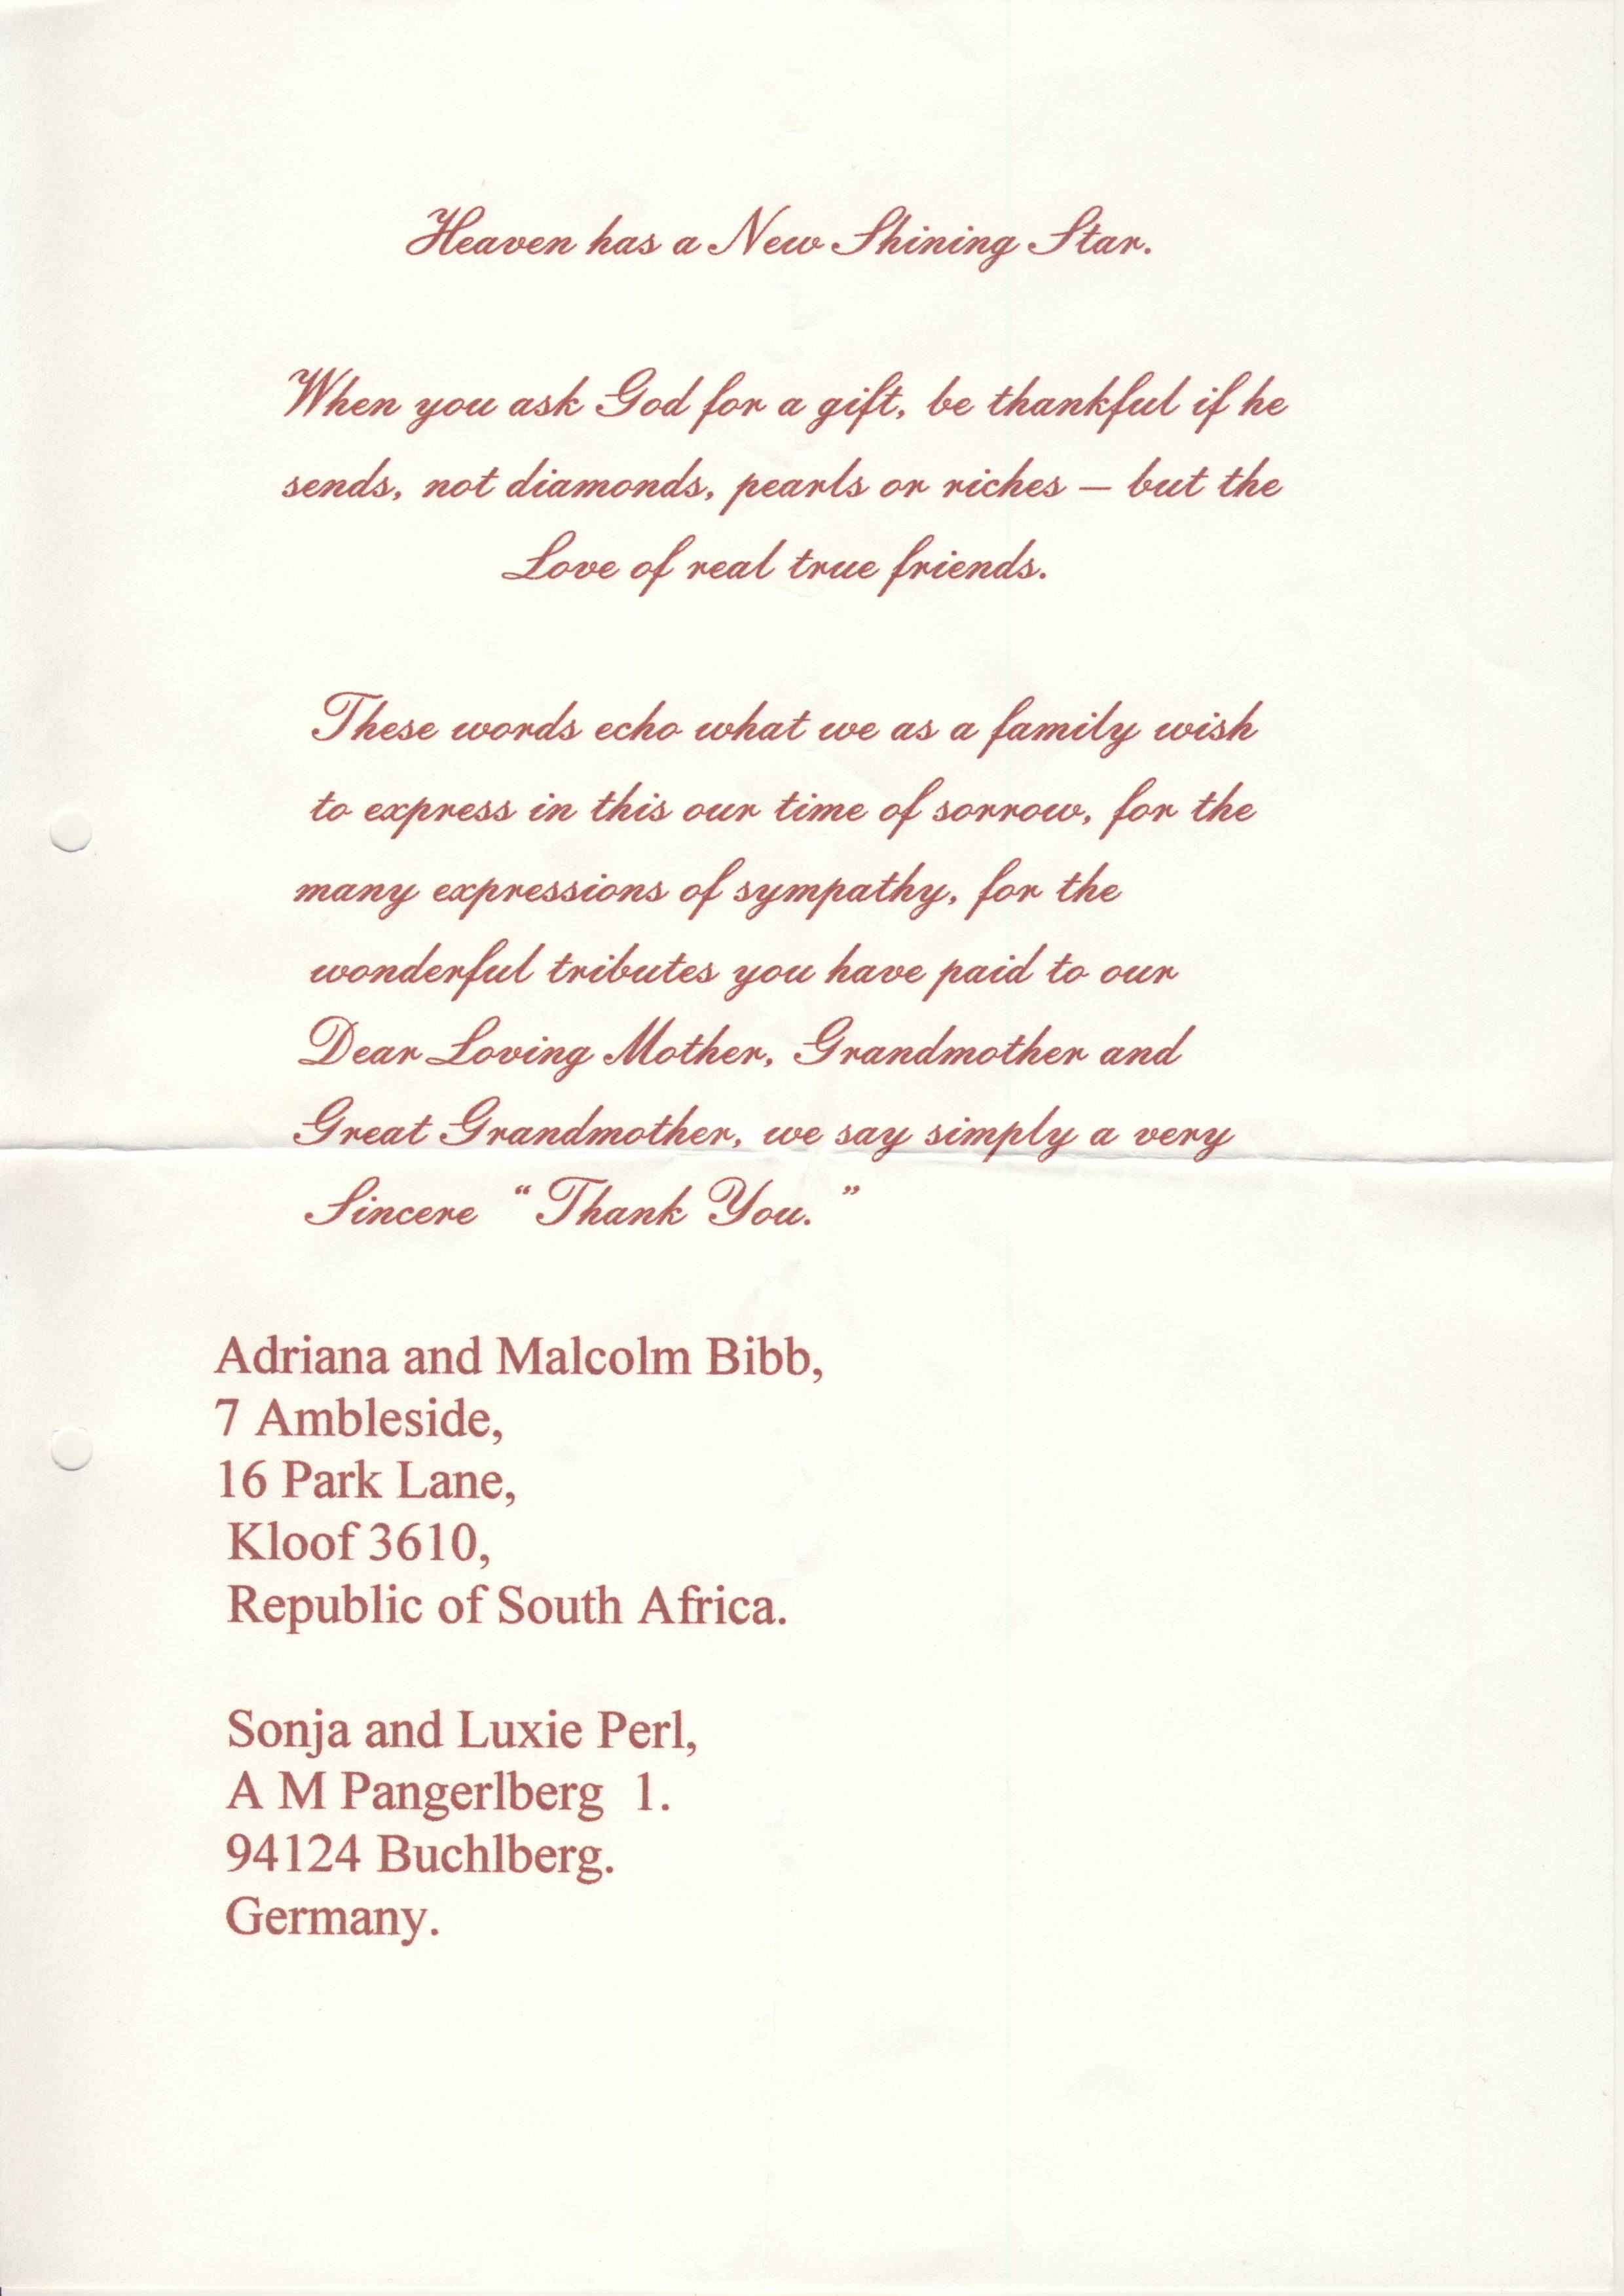 Heaven has a New Shining Star.
When you ask God for a gift, be thankful if he
sends, not diamonds, pearls or riches – but the
Love of real true friends.
These words echo what we as a family wish
to express in this our time of sorrow, for the
many expressions of sympathy, for the
wonderful tributes you have paid to our
Dear Loving Mother, Grandmother and
Great Grandmother, we say simply a very
Sincere “Thank You.”
Adriana and Malcolm Bibb,
7 Ambleside,
16 Park Lane,
Kloof 3610,
Republic of South Africa.
Sonja and Luxie Perl,
A M Pangerlberg 1.
94124 Buchlberg.
Germany.